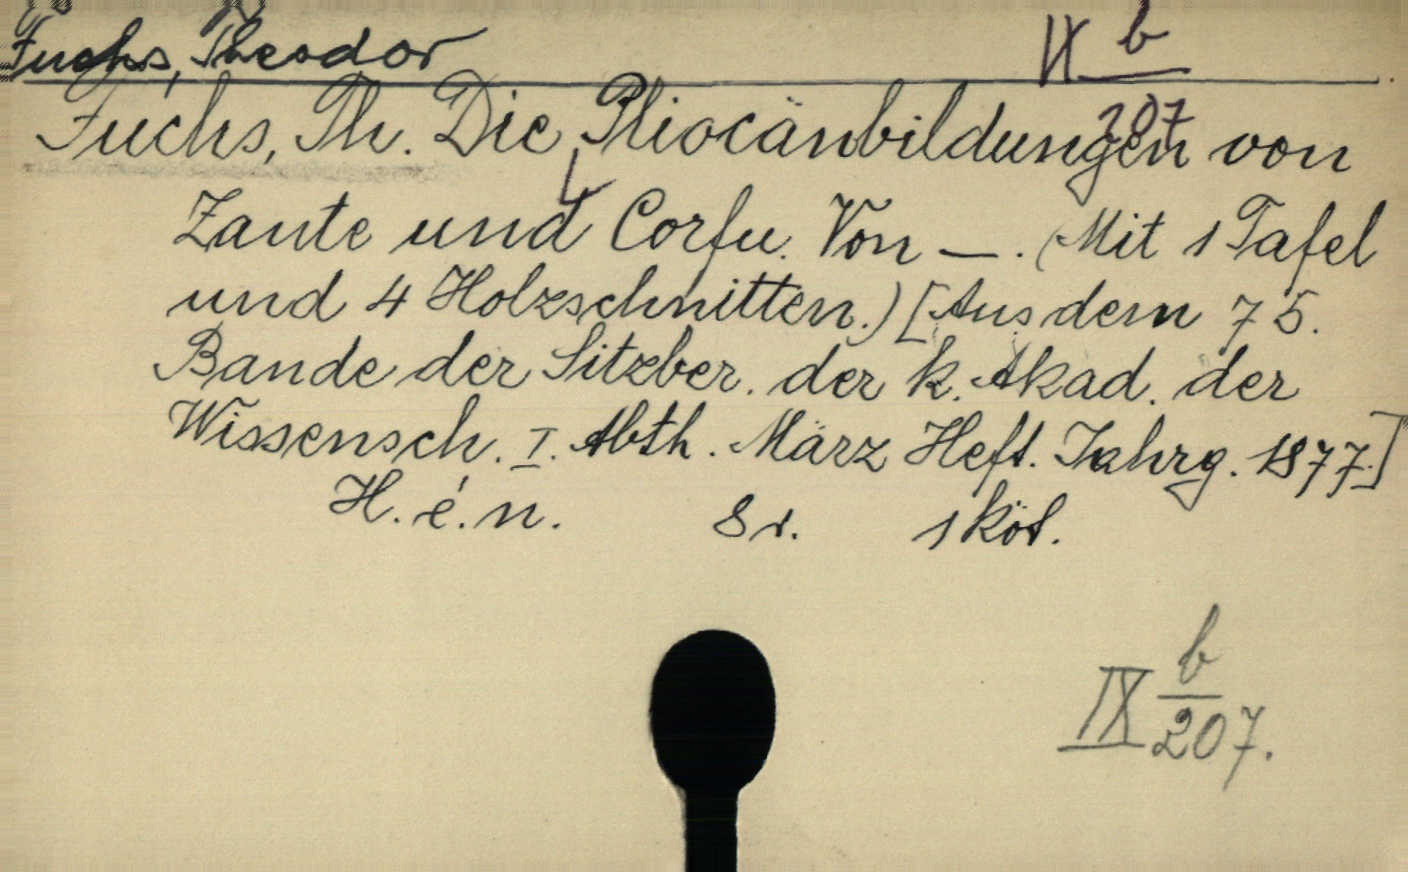 Fuchs, Theodor IX b
207
Fuchs, Th. Die Pliocänbildungen von
Zante und Corfu. Von —. (Mit 1 Tafel
und 4 Holzschnitten.) [Aus dem 75.
Bande der Sitzber. der k. Akad. der
Wissensch. I. Abth. März Heft. Jahrg. 1877.]
H. é. n. 8 r. 1 köt.
IX b
207.